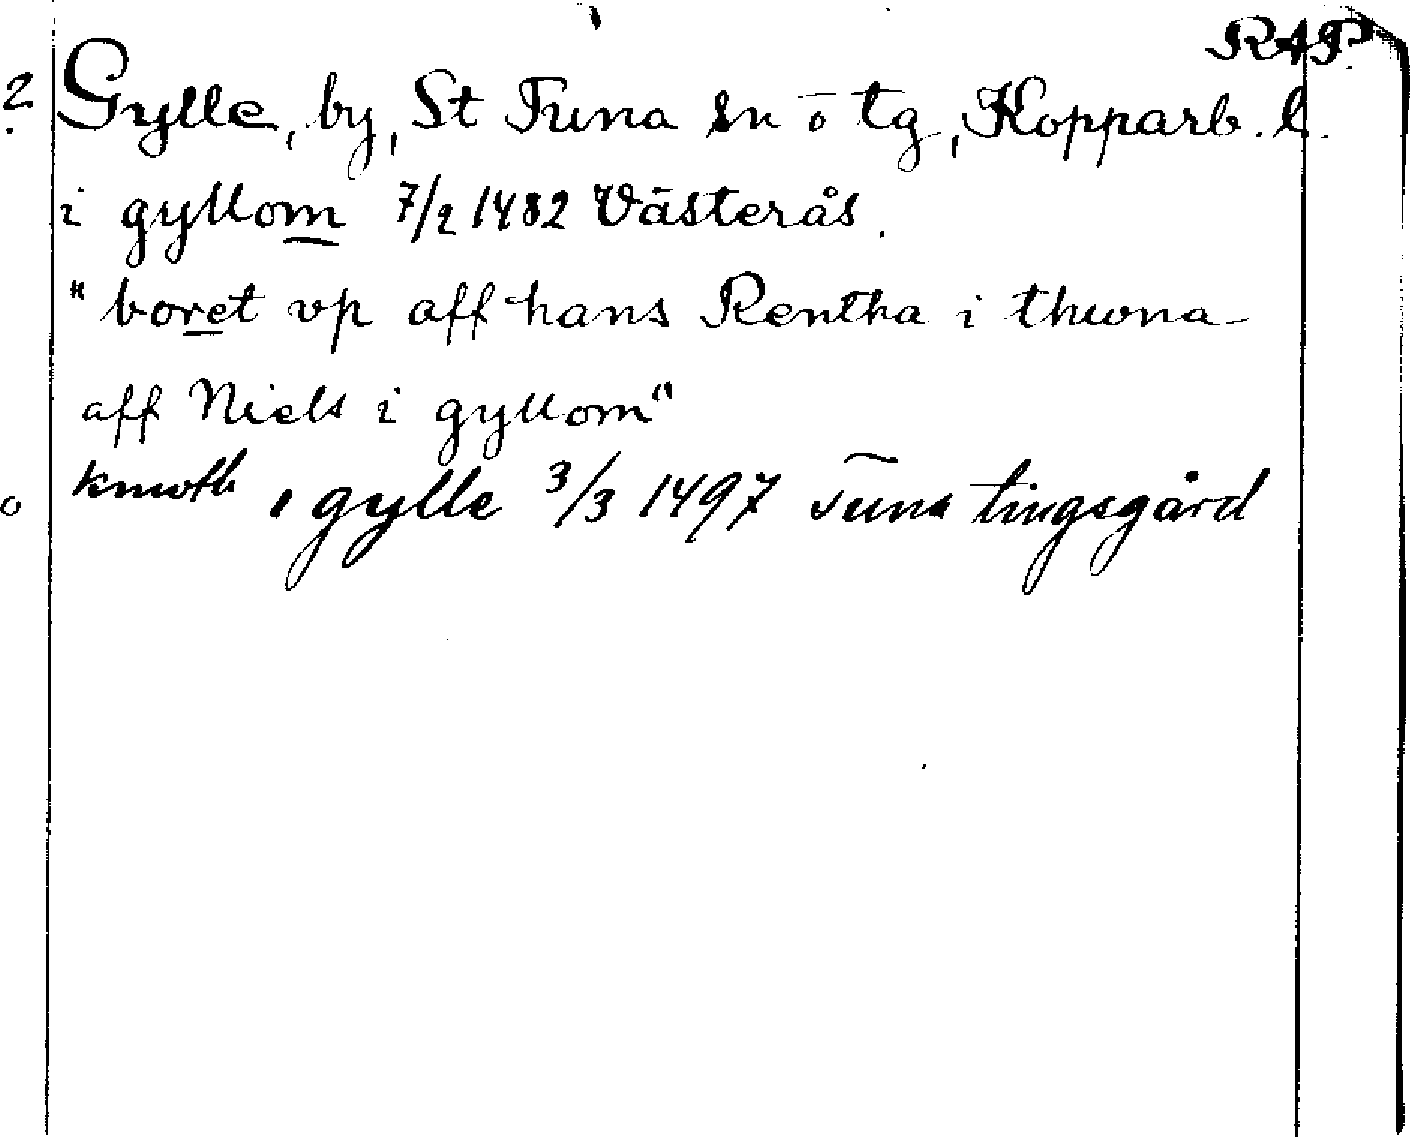 RAP.
? Gylle, by, St Tuna sn o tg, Kopparb. l.
i gyllom 7/2 1482 Västerås.
"boret vp aff hans Rentha i thwna
aff Niels i gyllom"
o i gylle 3/3 1497 Tuna tingsgård